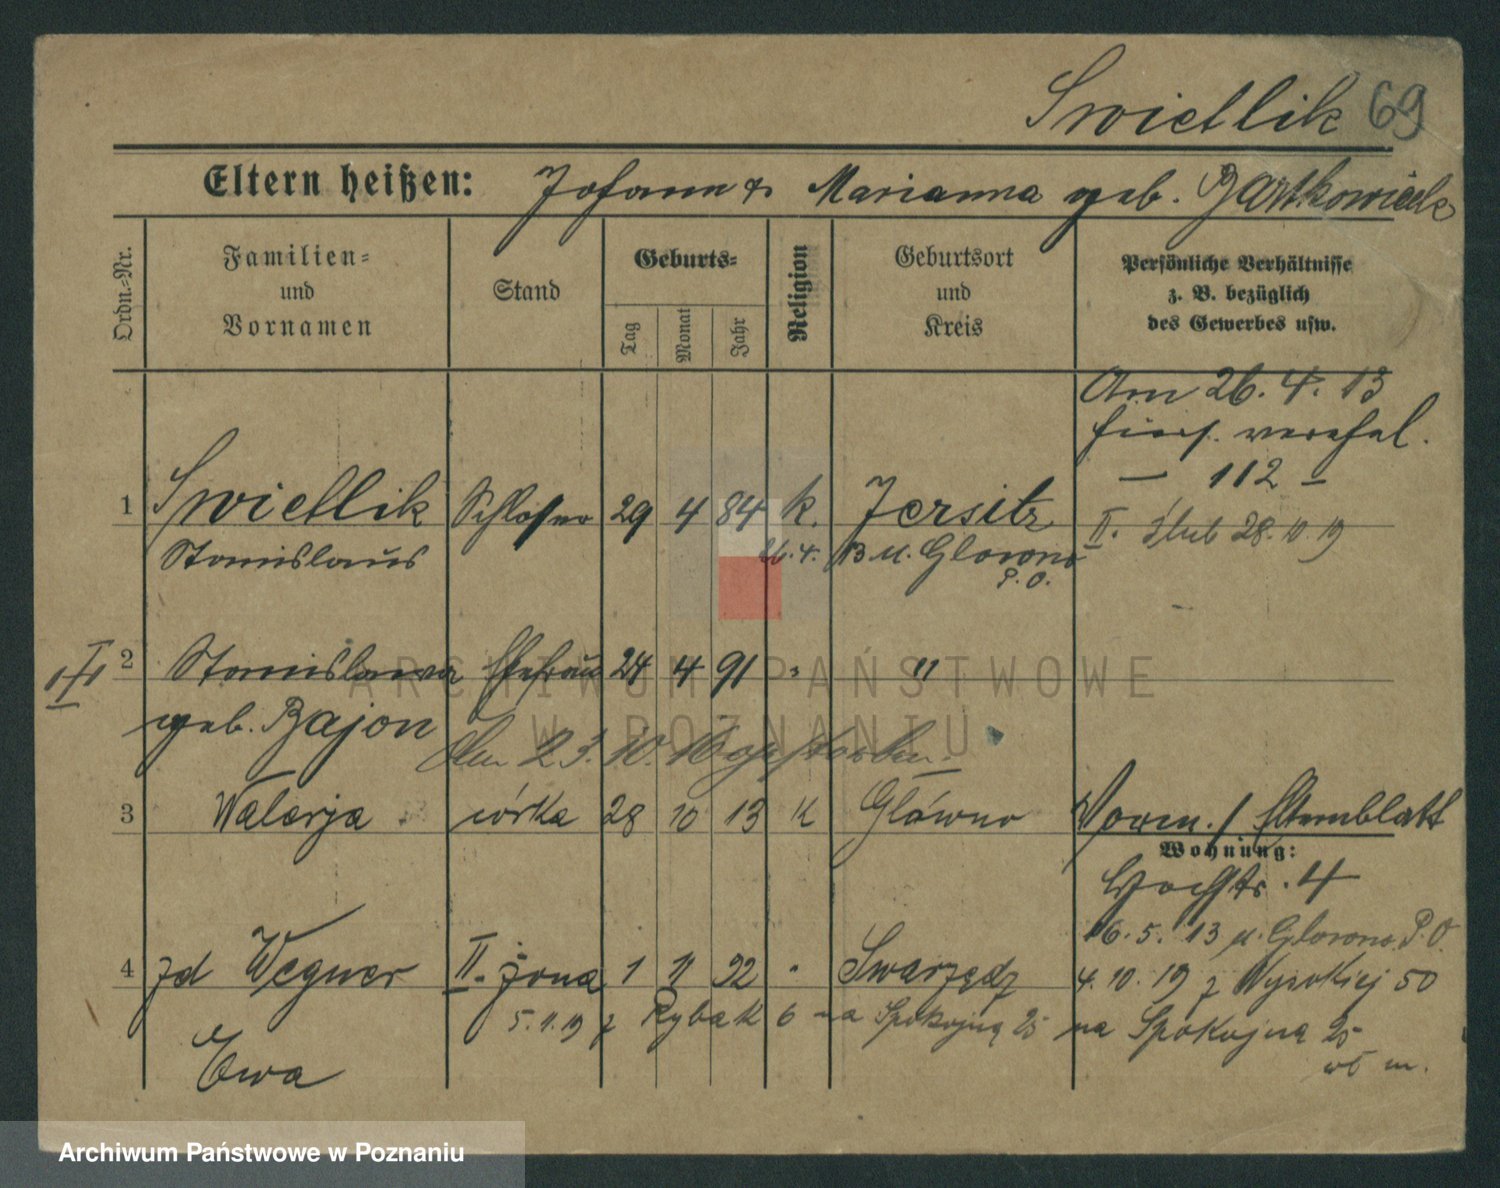 Swietlik 69
Eltern heißen: Johann & Marianna geb. Bartkowiak
Ordn.-Nr.
Familien-
und
Vornamen
Stand
Geburts-
Tag
Monat
Jahr
Religion
Geburtsort
und
Kreis
Persönliche Verhältnisse
z. B. bezüglich
des Gewerbes usw.
Am 26. 4. 13
hiers. verehel.
— 112 —
1 Swietlik Schlosser 29 4 84 k. Jersitz
II. ślub 28. 10. 19
Stanislaus
26. 4. 13 u. Glowno
P. O.
II
2 Stanislawa Ehefrau 24 4 91 " "
geb. Bajon
Am 23. 10. 16 gestorben.
3 Walerja córka 28 10 13 k Główno
Vorm. / Elternblatt
Wohnung:
4
16. 5. 13 u. Glowno P. O.
4 zd Wegner II. żona 1 11 92 " Swarzędz
4. 10. 19 z Wysokiej 50
5. 11. 19 z Rybak 6 na Spokojną 25
na Spokojną 25
Ewa
ARCHIWUM PAŃSTWOWE
W POZNANIU
Archiwum Państwowe w Poznaniu